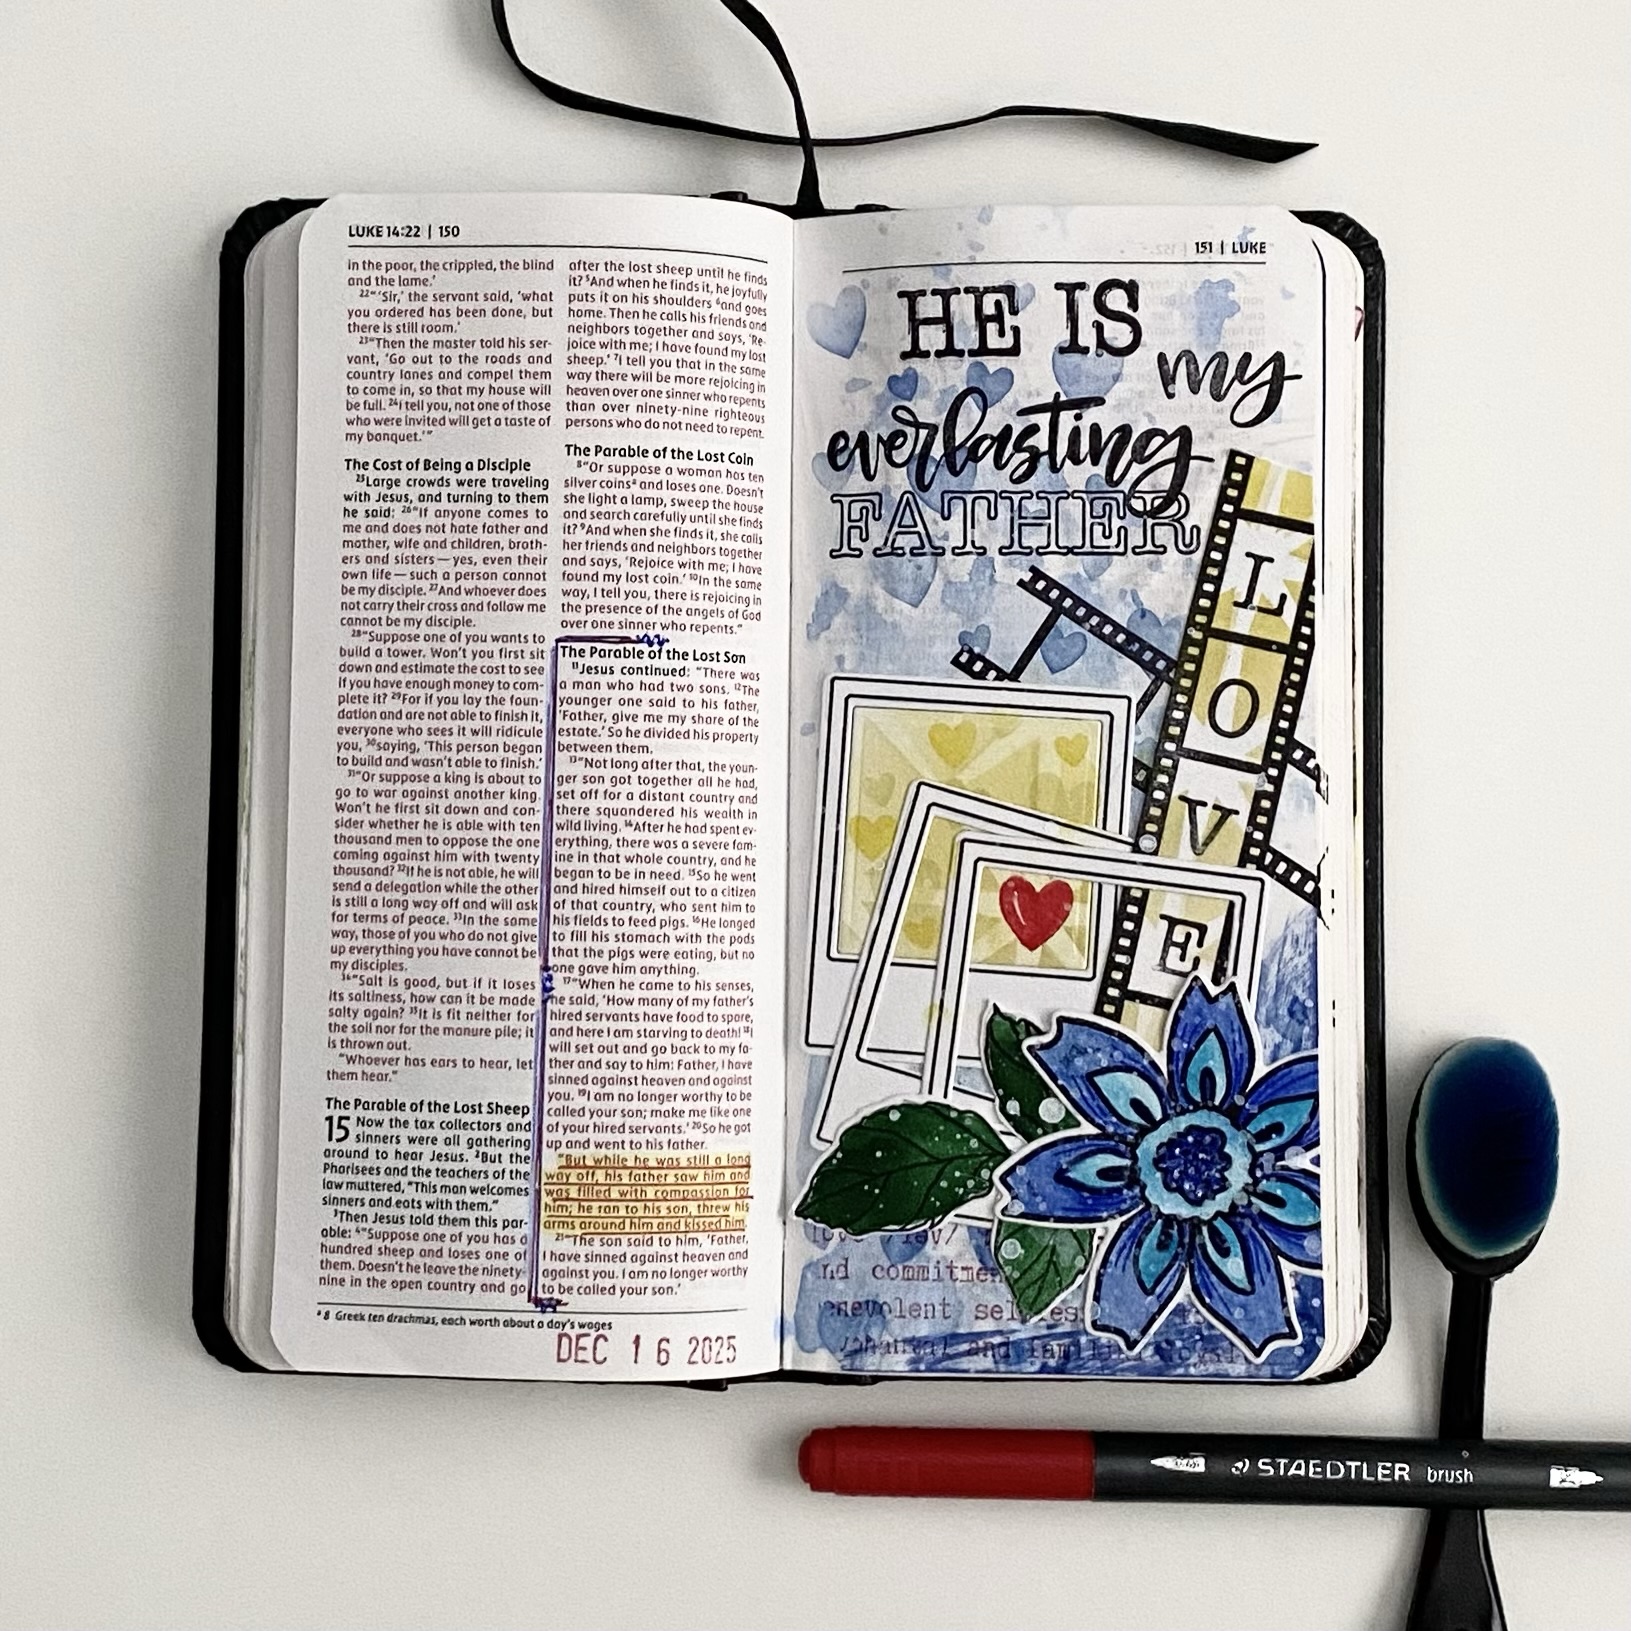 LUKE 14:22 | 150
in the poor, the crippled, the blind
and the lame.’
22“‘Sir,’ the servant said, ‘what
you ordered has been done, but
there is still room.’
23“Then the master told his ser-
vant, ‘Go out to the roads and
country lanes and compel them
to come in, so that my house will
be full. 24I tell you, not one of those
who were invited will get a taste of
my banquet.’”
The Cost of Being a Disciple
25Large crowds were traveling
with Jesus, and turning to them
he said: 26“If anyone comes to
me and does not hate father and
mother, wife and children, broth-
ers and sisters — yes, even their
own life — such a person cannot
be my disciple. 27And whoever does
not carry their cross and follow me
cannot be my disciple.
28“Suppose one of you wants to
build a tower. Won’t you first sit
down and estimate the cost to see
if you have enough money to com-
plete it? 29For if you lay the foun-
dation and are not able to finish it,
everyone who sees it will ridicule
you, 30saying, ‘This person began
to build and wasn’t able to finish.’
31“Or suppose a king is about to
go to war against another king.
Won’t he first sit down and con-
sider whether he is able with ten
thousand men to oppose the one
coming against him with twenty
thousand? 32If he is not able, he will
send a delegation while the other
is still a long way off and will ask
for terms of peace. 33In the same
way, those of you who do not give
up everything you have cannot be
my disciples.
34“Salt is good, but if it loses
its saltiness, how can it be made
salty again? 35It is fit neither for
the soil nor for the manure pile; it
is thrown out.
“Whoever has ears to hear, let
them hear.”
The Parable of the Lost Sheep
15 Now the tax collectors and
sinners were all gathering
around to hear Jesus. 2But the
Pharisees and the teachers of the
law muttered, “This man welcomes
sinners and eats with them.”
3Then Jesus told them this par-
able: 4“Suppose one of you has a
hundred sheep and loses one of
them. Doesn’t he leave the ninety-
nine in the open country and go
after the lost sheep until he finds
it? 5And when he finds it, he joyfully
puts it on his shoulders 6and goes
home. Then he calls his friends and
neighbors together and says, ‘Re-
joice with me; I have found my lost
sheep.’ 7I tell you that in the same
way there will be more rejoicing in
heaven over one sinner who repents
than over ninety-nine righteous
persons who do not need to repent.
The Parable of the Lost Coin
8“Or suppose a woman has ten
silver coinsa and loses one. Doesn’t
she light a lamp, sweep the house
and search carefully until she finds
it? 9And when she finds it, she calls
her friends and neighbors together
and says, ‘Rejoice with me; I have
found my lost coin.’ 10In the same
way, I tell you, there is rejoicing in
the presence of the angels of God
over one sinner who repents.”
The Parable of the Lost Son
11Jesus continued: “There was
a man who had two sons. 12The
younger one said to his father,
‘Father, give me my share of the
estate.’ So he divided his property
between them.
13“Not long after that, the youn-
ger son got together all he had,
set off for a distant country and
there squandered his wealth in
wild living. 14After he had spent ev-
erything, there was a severe fam-
ine in that whole country, and he
began to be in need. 15So he went
and hired himself out to a citizen
of that country, who sent him to
his fields to feed pigs. 16He longed
to fill his stomach with the pods
that the pigs were eating, but no
one gave him anything.
17“When he came to his senses,
he said, ‘How many of my father’s
hired servants have food to spare,
and here I am starving to death! 18I
will set out and go back to my fa-
ther and say to him: Father, I have
sinned against heaven and against
you. 19I am no longer worthy to be
called your son; make me like one
of your hired servants.’ 20So he got
up and went to his father.
“But while he was still a long
way off, his father saw him and
was filled with compassion for
him; he ran to his son, threw his
arms around him and kissed him.
21“The son said to him, ‘Father,
I have sinned against heaven and
against you. I am no longer worthy
to be called your son.’
a 8 Greek ten drachmas, each worth about a day’s wages
DEC 16 2025
151 | LUKE
HE IS my
everlasting
FATHER
L
O
V
E
love /ləv/
nd commitmen
enevolent sel
and
STAEDTLER brush